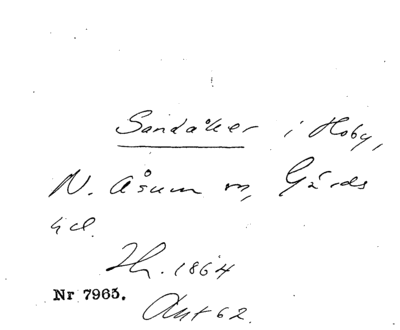 Sandåker i Hoby,
N. Åsum sn, Gärds
hd.
Th. 1864
Nr 7963.
Ant 62.